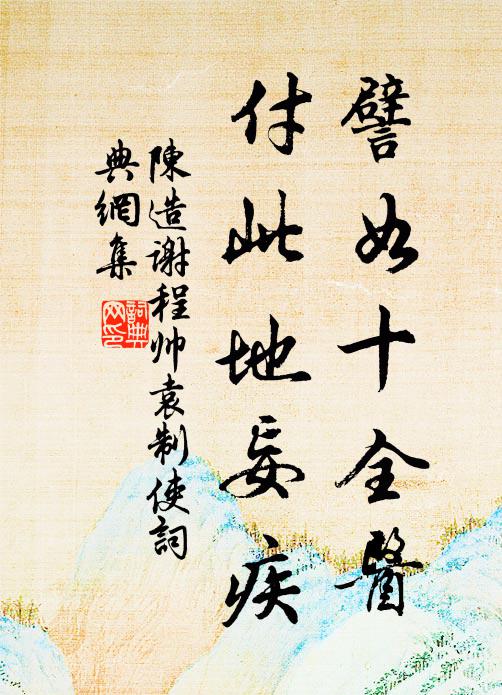 譬如十全醫
付此地妄疾
陳造謝程帅袁制使詞
典網集
詞典
网印